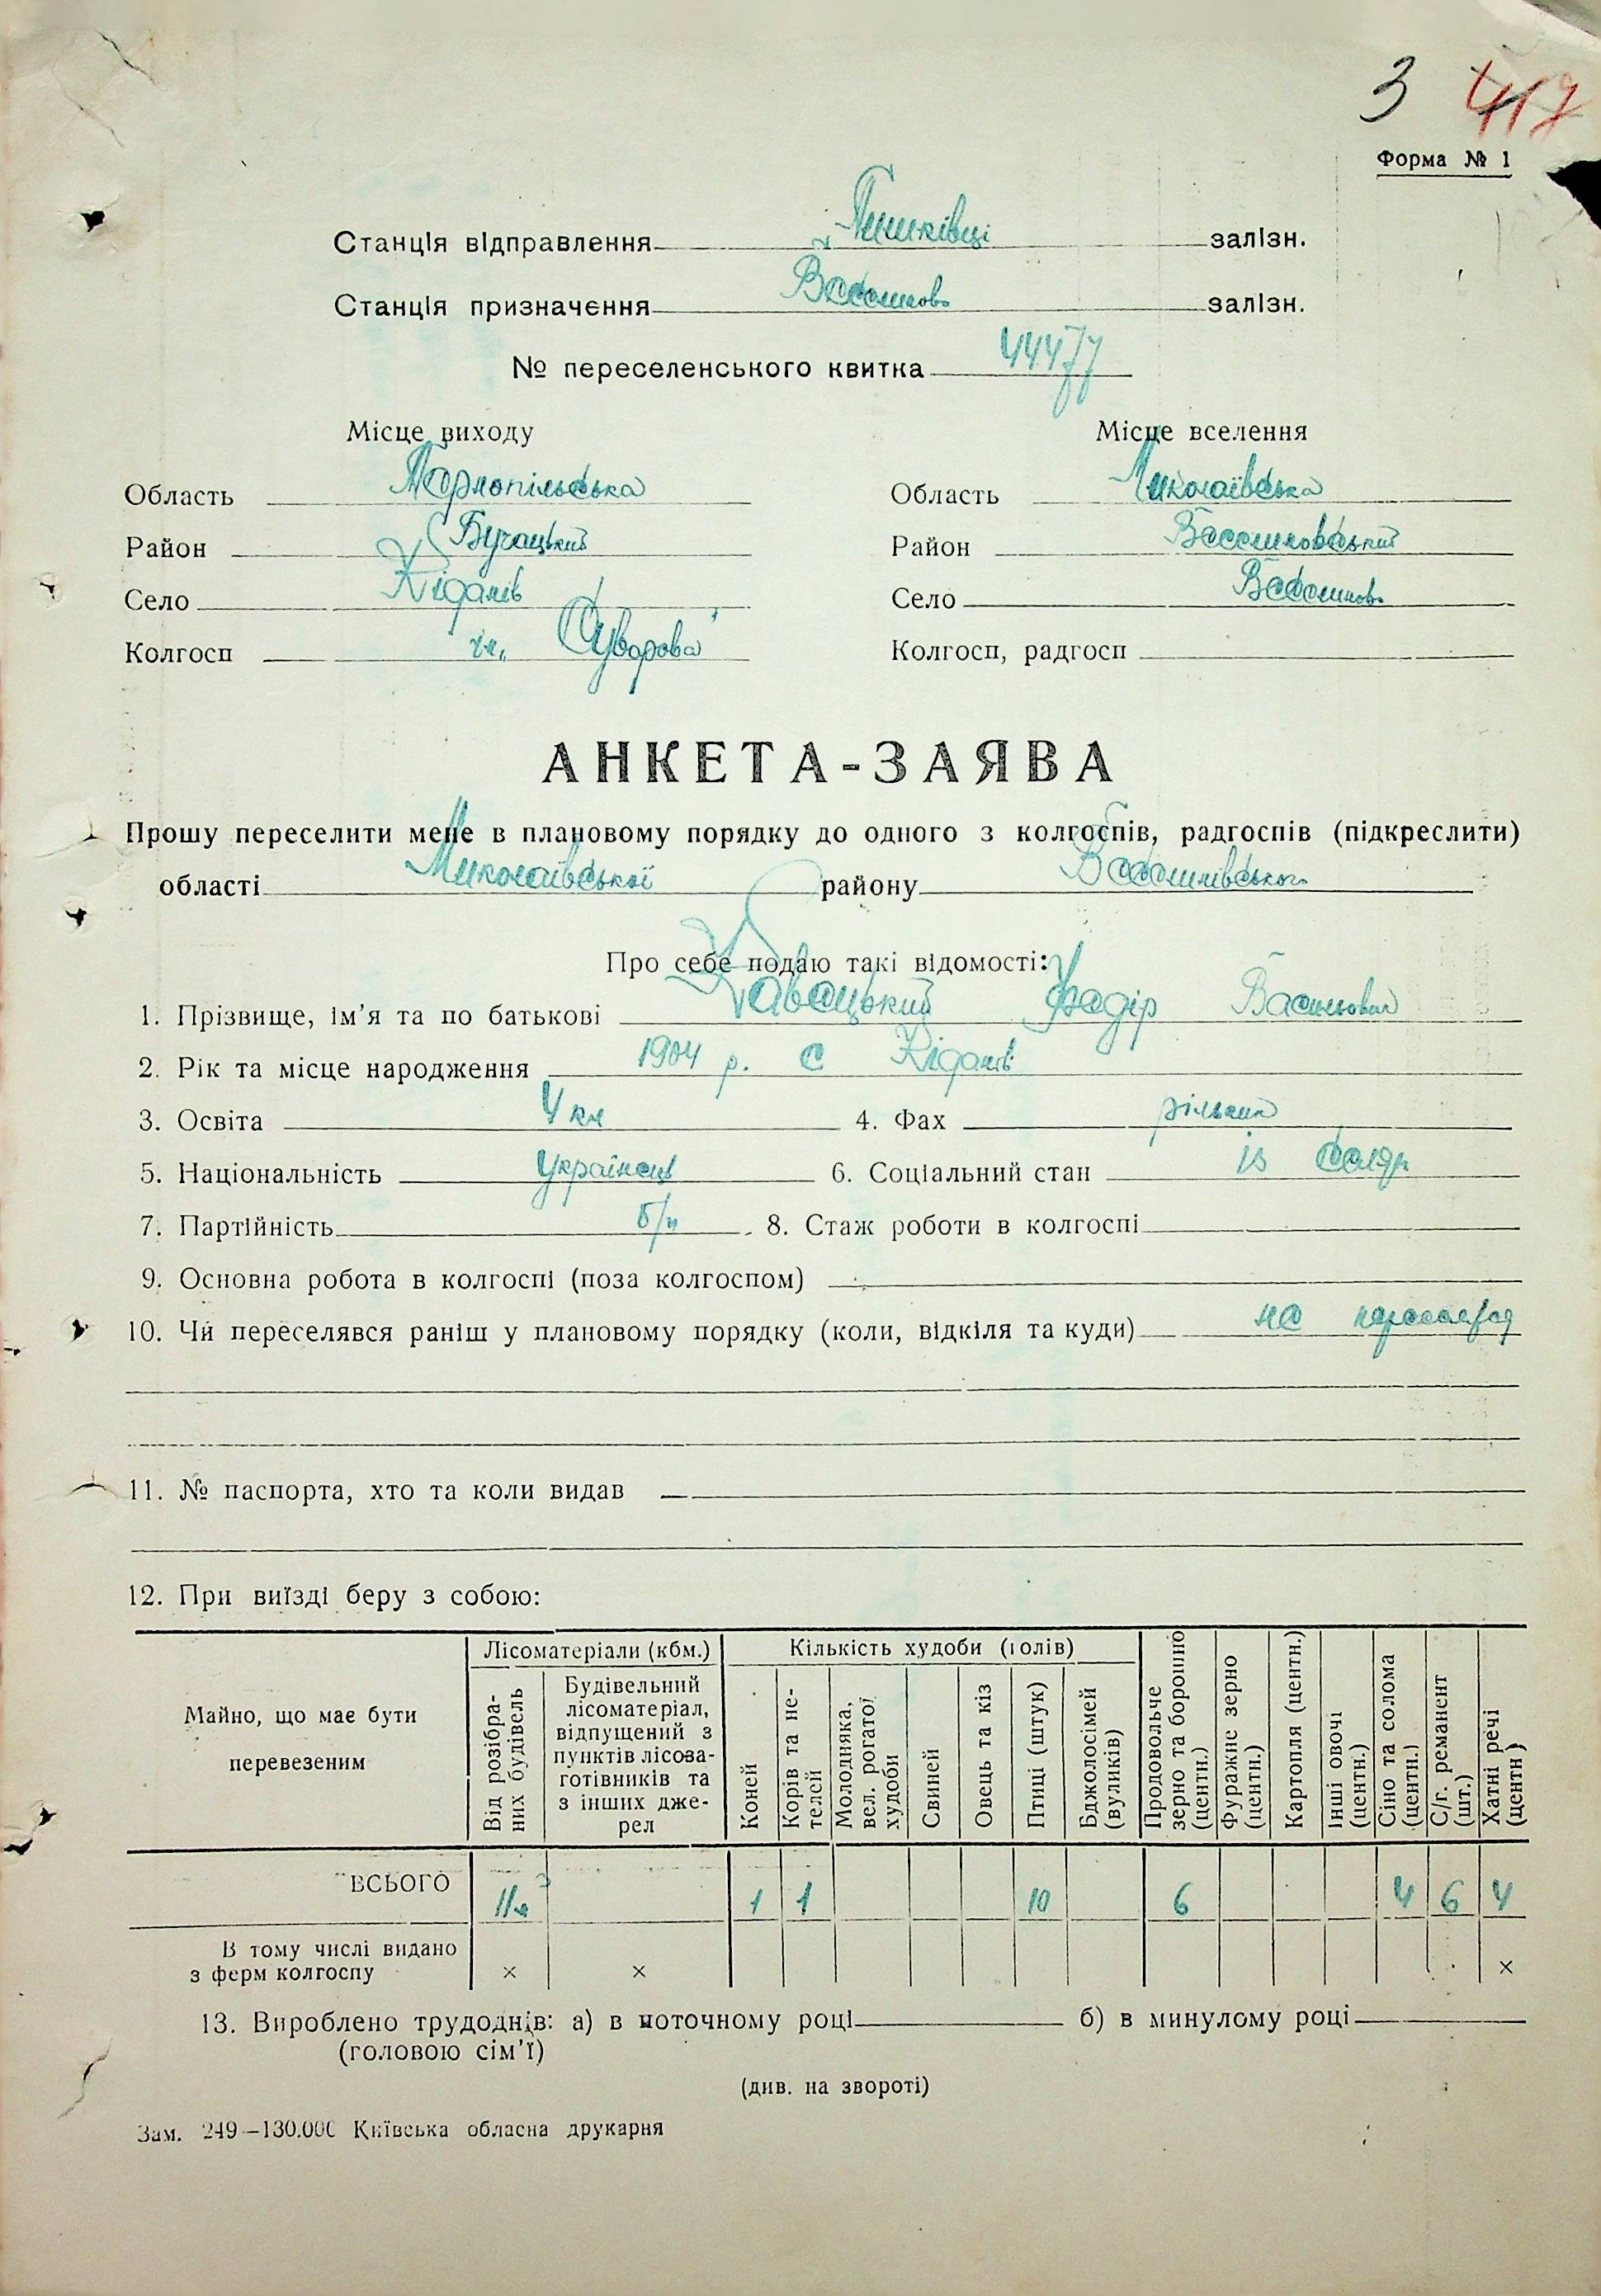 3 417
Форма № 1
Станція відправлення Пишківці залізн.
Станція призначення Веселинове залізн.
№ переселенського квитка 44477
Місце виходу Місце вселення
Область Тернопільська Область Миколаївська
Район Бучацький Район Веселиновський
Село Кіданів Село Веселинов
Колгосп ім. Суворова" Колгосп, радгосп
АНКЕТА-ЗАЯВА
Прошу переселити мене в плановому порядку до одного з колгоспів, радгоспів (підкреслити)
області Миколаївської району Веселинівського
Про себе подаю такі відомості:
1. Прізвище, ім'я та по батькові Федір Васильович
2. Рік та місце народження 1904 р. с Кіданів
3. Освіта 4 кл 4. Фах рільник
5. Національність Українець 6. Соціальний стан із селян
7. Партійність б/п 8. Стаж роботи в колгоспі
9. Основна робота в колгоспі (поза колгоспом)
10. Чи переселявся раніш у плановому порядку (коли, відкіля та куди) не
11. № паспорта, хто та коли видав
12. При виїзді беру з собою:
Майно, що має бути перевезеним
Лісоматеріали (кбм.)
Від розібраних будівель
Будівельний лісоматеріал, відпущений з пунктів лісозаготівників та з інших джерел
Кількість худоби (голів)
Коней
Корів та нетелей
Молодняка, вел. рогатої худоби
Свиней
Овець та кіз
Птиці (штук)
Бджолосімей (вуликів)
Продовольче зерно та борошно (центн.)
Фуражне зерно (центн.)
Картопля (центн.)
Інші овочі (центн.)
Сіно та солома (центн.)
С/г. реманент (шт.)
Хатні речі (центн)
ВСЬОГО 11м3 1 1 10 6 4 6 4
В тому числі видано
з ферм колгоспу × × ×
13. Вироблено трудоднів: а) в поточному році б) в минулому році
(головою сім'ї)
(див. на звороті)
Зам. 249—130.000 Київська обласна друкарня